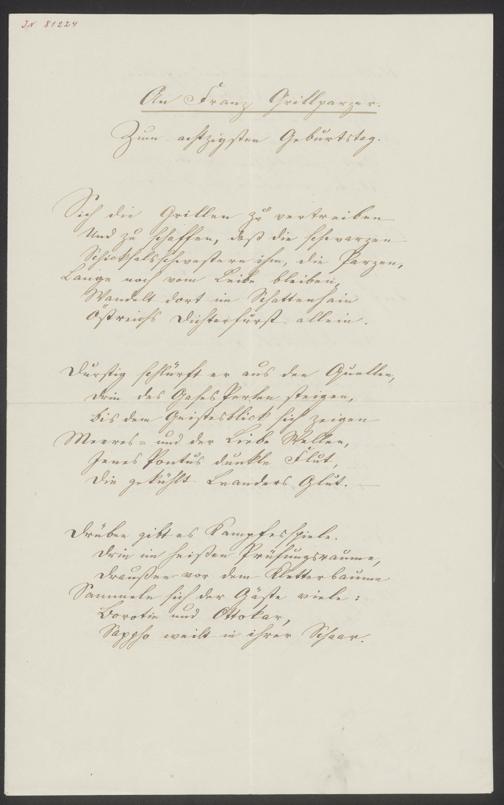 IN 81224
An Franz Grillparzer.
Zum achtzigsten Geburtstag.
Sich die Grillen zu vertreiben
Und zu schaffen, daß die schwarzen
Schicksalsschwestern ihm, die Parzen,
Lange noch vom Leibe bleiben,
Wandelt dort im Schattenhain
Östreichs Dichterfürst allein.
Durstig schlürft er aus den Quellen,
Drin des Gases Perlen steigen,
Bis dem Geistesblick sich zeigen
Meeres- und der Liebe Wellen,
Jenes Pontus dunkle Flut,
Die gekühlt Leanders Glut. —
Drüben gibt es Kampfesspiele.
Drin im heißen Prüfungsraume,
Draußen vor dem Kletterbaume
Sammeln sich der Gäste viele:
Borotin und Ottokar,
Sappho weilt in ihrer Schaar.